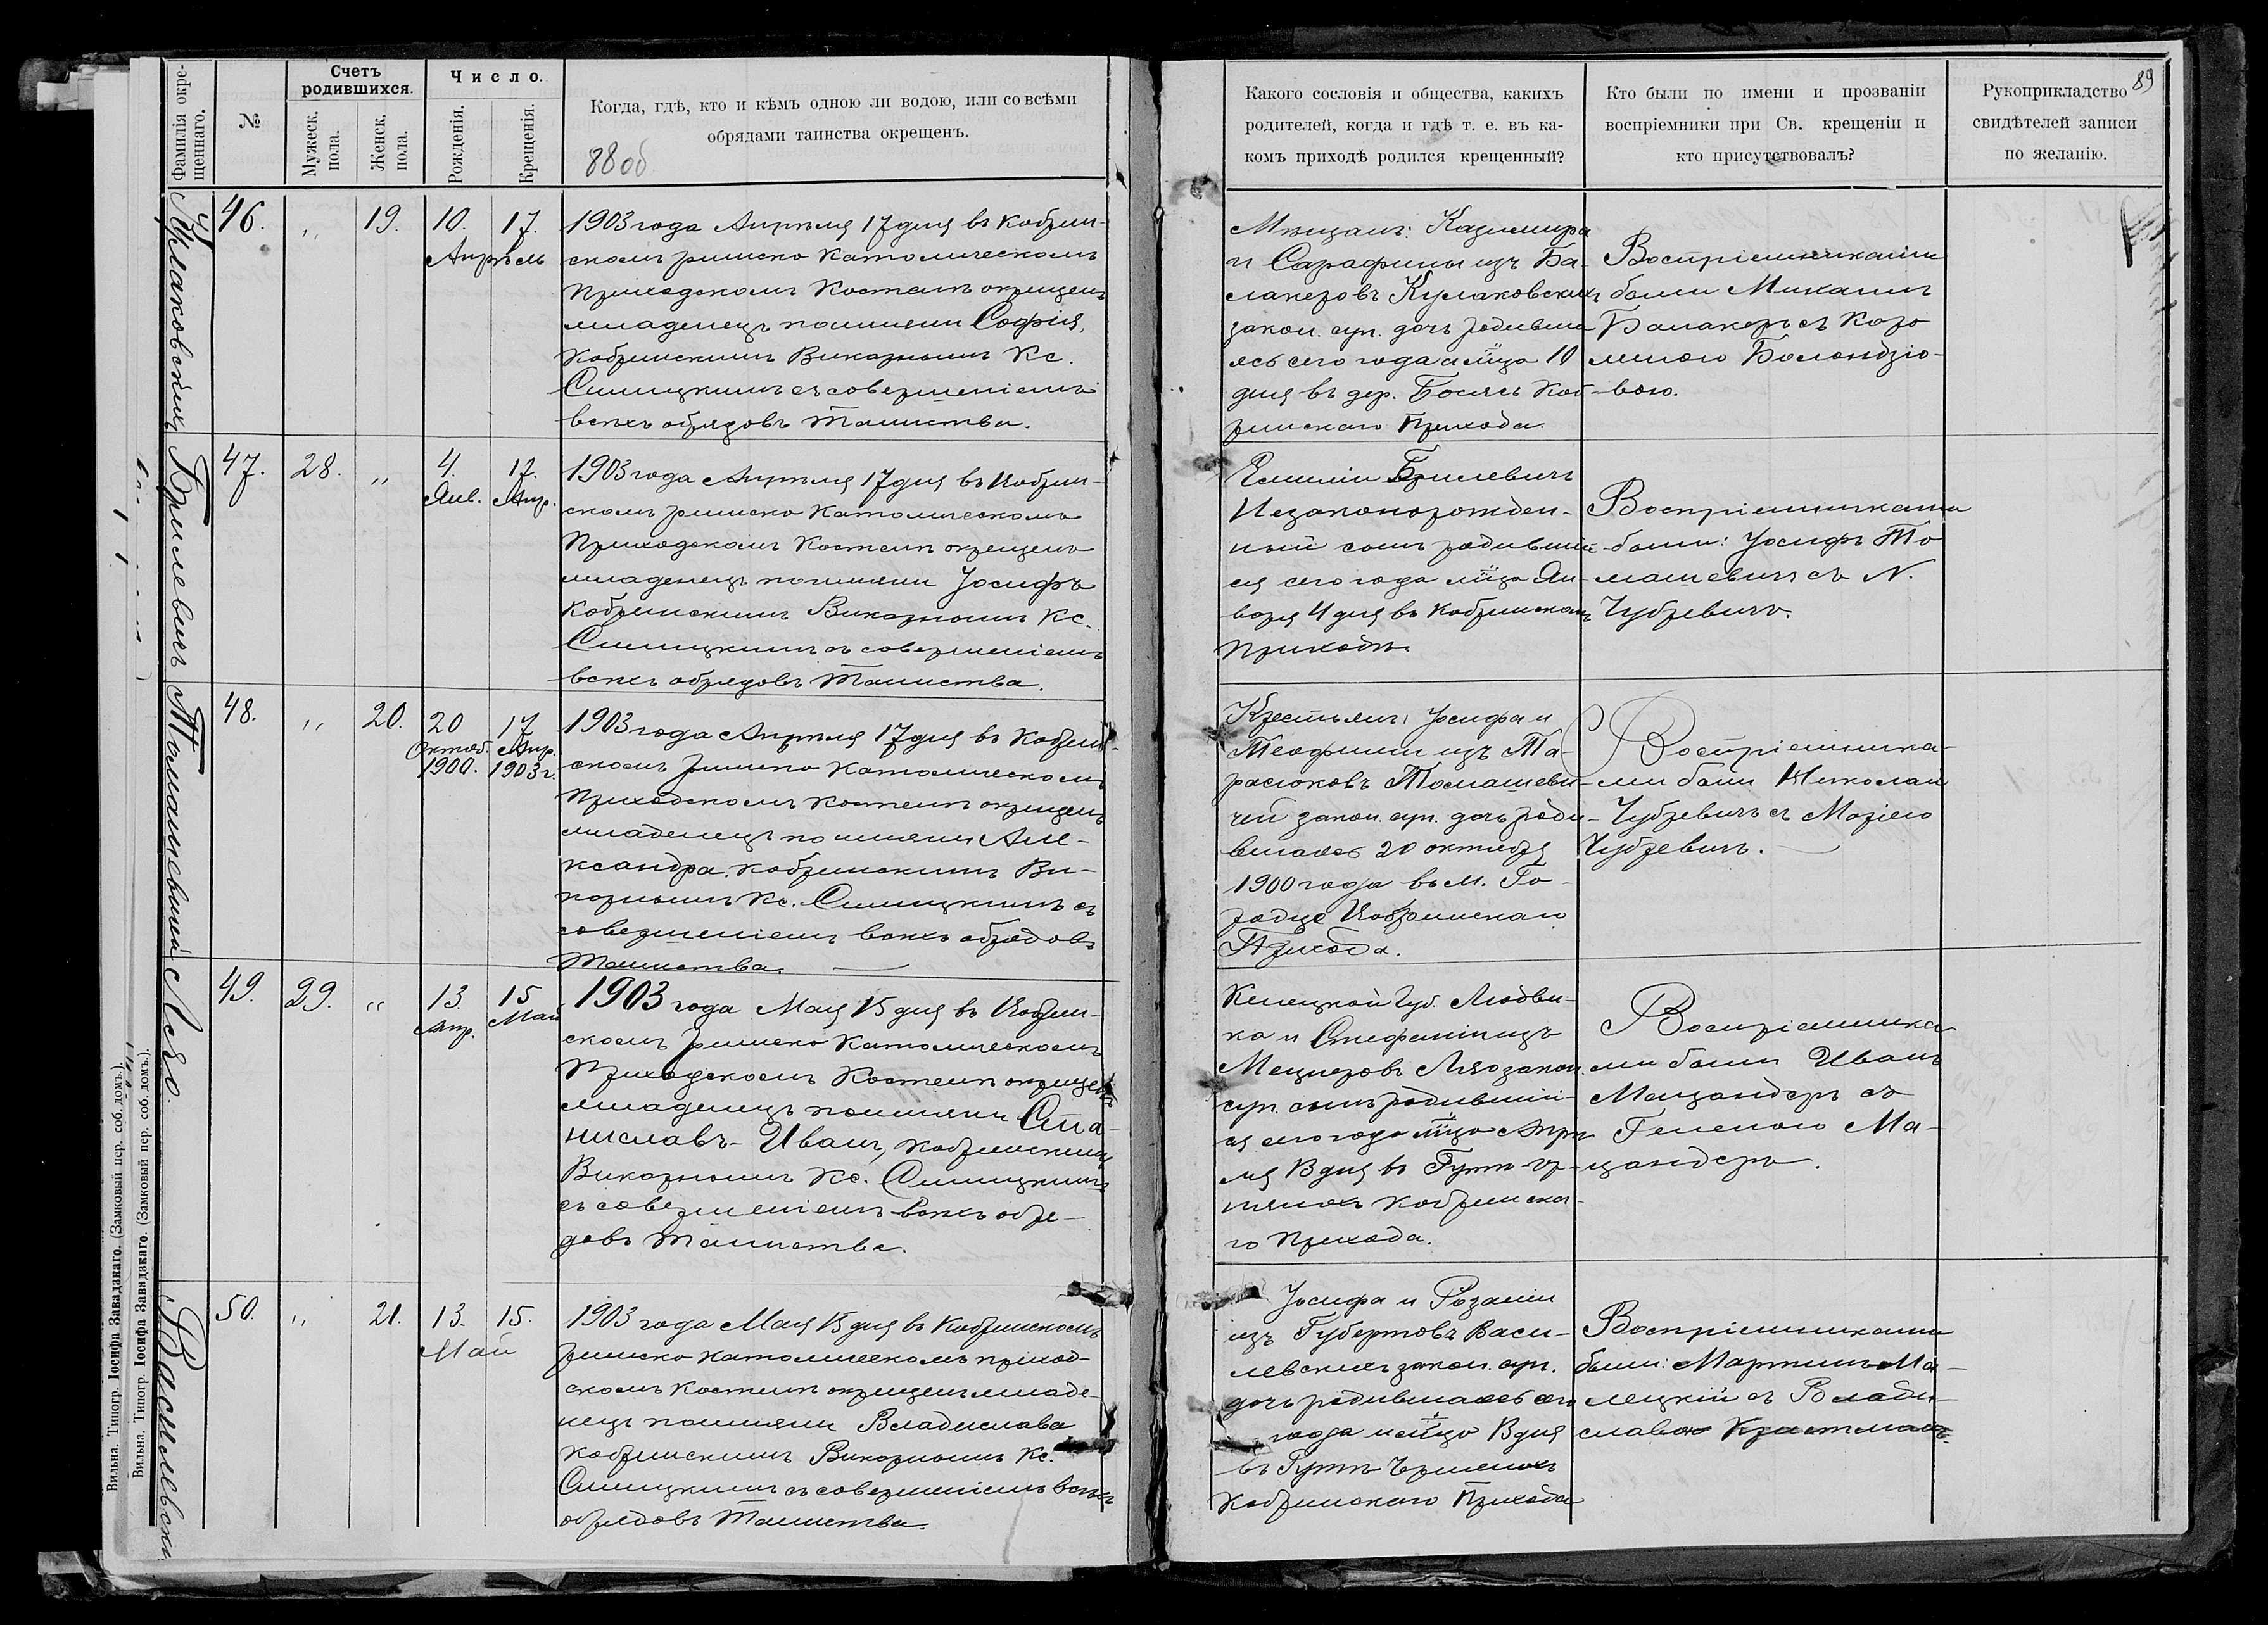 Фамилія окре-
щеннаго.
№
Счетъ
родившихся.
Мужеск.
пола.
Женск.
пола.
Число.
Рожденія.
Крещенія.
Когда, гдѣ, кто и кѣмъ одною ли водою, или со всѣми
обрядами таинства окрещенъ.
88 об
Какого сословія и общества, какихъ
родителей, когда и гдѣ т. е. въ ка-
комъ приходѣ родился крещенный?
Кто были по имени и прозванію
воспріемники при Св. крещеніи и
кто присутствовалъ?
Рукоприкладство
свидѣтелей записи
по желанію.
89
Кулаковскихъ
46. " 19. 10. 17.
Апрѣль
1903 года Апрѣля 17 дня въ Кобрин-
скомъ римско Католическомъ
Приходскомъ Костелѣ окрещенъ
младенецъ по имени Софія,
Кобринскимъ Викарнымъ Кс.
съ совершеніемъ
всѣхъ обрядовъ Таинства.
Мѣщанъ: Казимира
и Сарафины изъ Ба-
лакеровъ Кулаковскихъ
закон. суп. дочь родивша
ясь сего года мца 10
дня въ дер. Коб-
ринскаго Прихода.
Воспріемниками
были Михаилъ
Балакеръ съ Каро
линою
вою.
Брилевичъ
47. 28. " 4. 17.
Янв. Апр.
1903 года Апрѣля 17 дня въ Кобрин-
скомъ римско Католическомъ
Приходскомъ Костелѣ окрещенъ
младенецъ по имени Іосифъ
Кобринскимъ Викарнымъ Кс.
съ совершеніемъ
всѣхъ обрядовъ Таинства.
Емиліи Брилевичъ
Незаконорожден-
ный сынъ родившій-
ся сего года мца Ян-
варя 4 дня въ Кобринскомъ
Приходѣ.
Воспріемниками
были: Іосифъ То
машевичъ съ N.
Чубревичъ.
Томашевичей
48. " 20. 20 17
Октяб. Апр.
1900. 1903 г.
1903 года Апрѣля 17 дня въ Кобрин-
скомъ римско Католическомъ
Приходскомъ Костелѣ окрещенъ
младенецъ по имени Але-
ксандра, Кобринскимъ Ви-
карнымъ Кс. съ
совершеніемъ всѣхъ обрядовъ
Таинства.
Крестьянъ: Іосифа и
Теофиліи изъ Та-
расюковъ Томашеви-
чей закон. суп. дочь роди-
вшаясь 20 октября
1900 года въ м. Го-
родцѣ Кобринскаго
Прихода.
Воспріемника-
ми были Николай
Чубревичъ съ Маріею
Чубревичъ.
Лязо.
49. 29. " 13 15
Апр. Май
1903 года Мая 15 дня въ Кобрин-
скомъ римско Католическомъ
Приходскомъ Костелѣ окрещенъ
младенецъ по имени Ста-
ниславъ-Иванъ, Кобринскимъ
Викарнымъ Кс.
съ совершеніемъ всѣхъ обря-
довъ Таинства.
Келецкой Губ. Людви-
ка и Стефаніи изъ
Лязо закон.
суп. сынъ родившій-
ся сего года мца Апрѣ
ля 13 дня въ Гутѣ
Кобринска-
го Прихода.
Воспріемника-
ми были Иванъ
Мацандеръ съ
Геленою Ма-
цандеръ.
Василевски
50. " 21. 13. 15.
Май
1903 года Мая 15 дня въ Кобринскомъ
римско католическомъ приход-
скомъ Костелѣ окрещенъ младе-
нецъ по имени Владислава
Кобринскимъ Викарнымъ Кс.
съ совершеніемъ всѣхъ
обрядовъ Таинства.
Іосифа и Розаліи
изъ Губертовъ Васи-
левскихъ закон. суп.
дочь родившаясь сего
года мца 13 дня
въ Гутѣ
Кобринскаго Прихода
Воспріемниками
были: Мартинъ Ма-
лецкій съ Влади-
славою
Вильна. Типогр. Іосифа Завадзкаго. (Замковый пер. соб. домъ.).
Вильна. Типогр. Іосифа Завадзкаго. (Замковый пер. соб. домъ.).